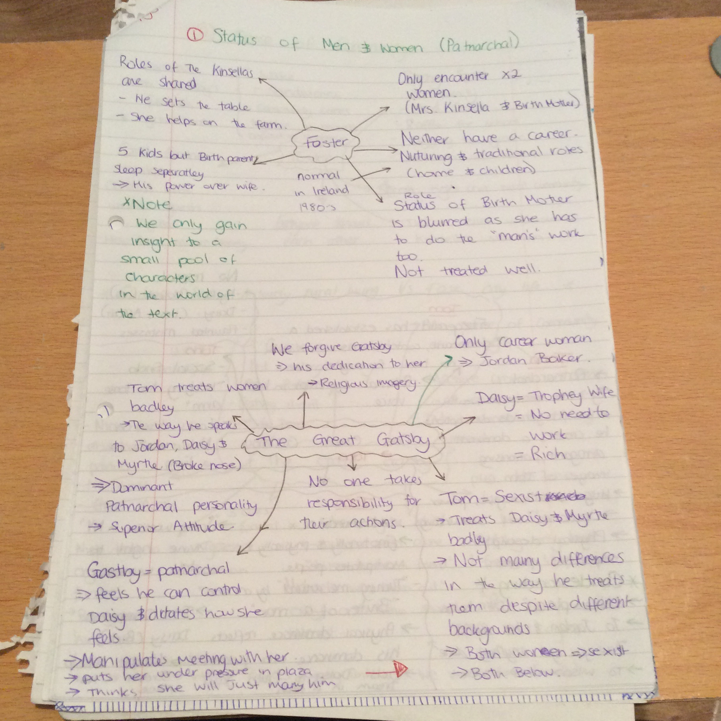 ① Status of Men & Women (Patriarchal)
Roles of The Kinsellas
are shared
- He sets the table
- She helps on the farm.
5 Kids but Birth parents
sleep separatley
⇒ His power over wife.
*Note
We only gain
insight to a
small pool of
characters
in the world of
the text.
Foster
normal
in Ireland
1980s
Only encounter x2
women.
(Mrs. Kinsella & Birth Mother)
Neither have a career.
Nuturing & traditional roles
(home & children)
Role
Status of Birth Mother
is blurred as she has
to do the "man's" work
too.
Not treated well.
We forgive Gatsby
⇒ his dedication to her
→ Religious imagery
Only career woman
⇒ Jordan Baker.
Tom treats women
badley
→ The way he speaks
to Jordan, Daisy &
Myrtle (Broke nose)
⇒ Dominant
Patriarchal personality
→ Superior Attitude.
The Great Gatsby
Daisy = Trophey Wife
= No need to
work
= Rich
No one takes
responsibility for
their actions.
Tom = Sexist
→ Treats Daisy & Myrtle
badly
→ Not mainy differences
in the way he treats
them despite different
backgrounds
→ Both women ⇒ sexist
→ Both Below.
Gastby = patriarchal
⇒ feels he can control
Daisy & dictates how she
feels
→ Manipulates Meeting with her
→ puts her under pressure in plaza
→ Thinks she will just marry him